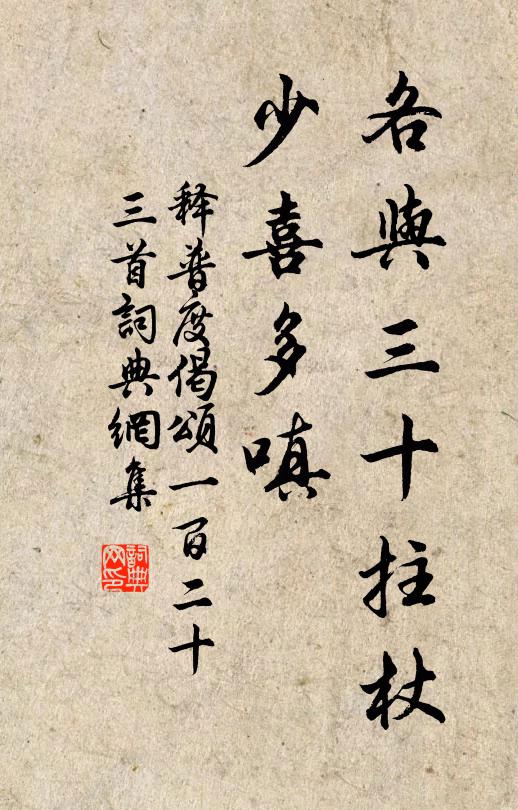 各與三十拄杖
少喜多嗔
释普度偈頌一百二十
三首詞典網集
詞典
网印